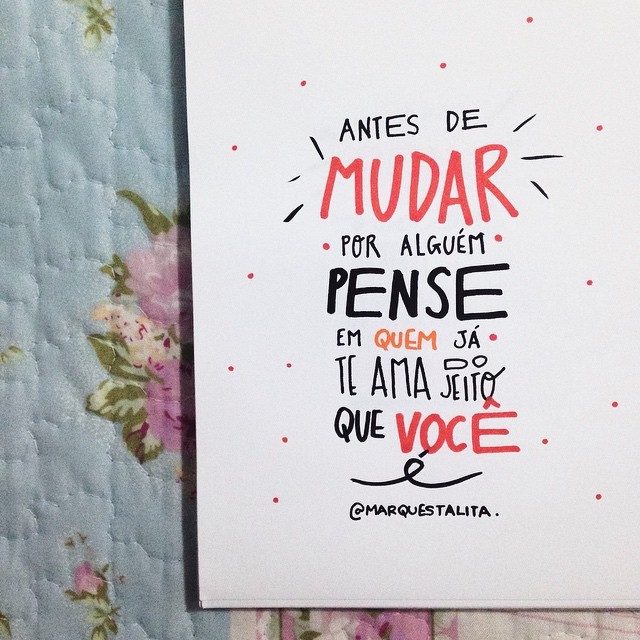 ANTES DE
MUDAR
POR ALGUÉM
PENSE
EM QUEM JÁ
TE AMA DO JEITO
QUE VOCÊ
é
@MARQUESTALITA.